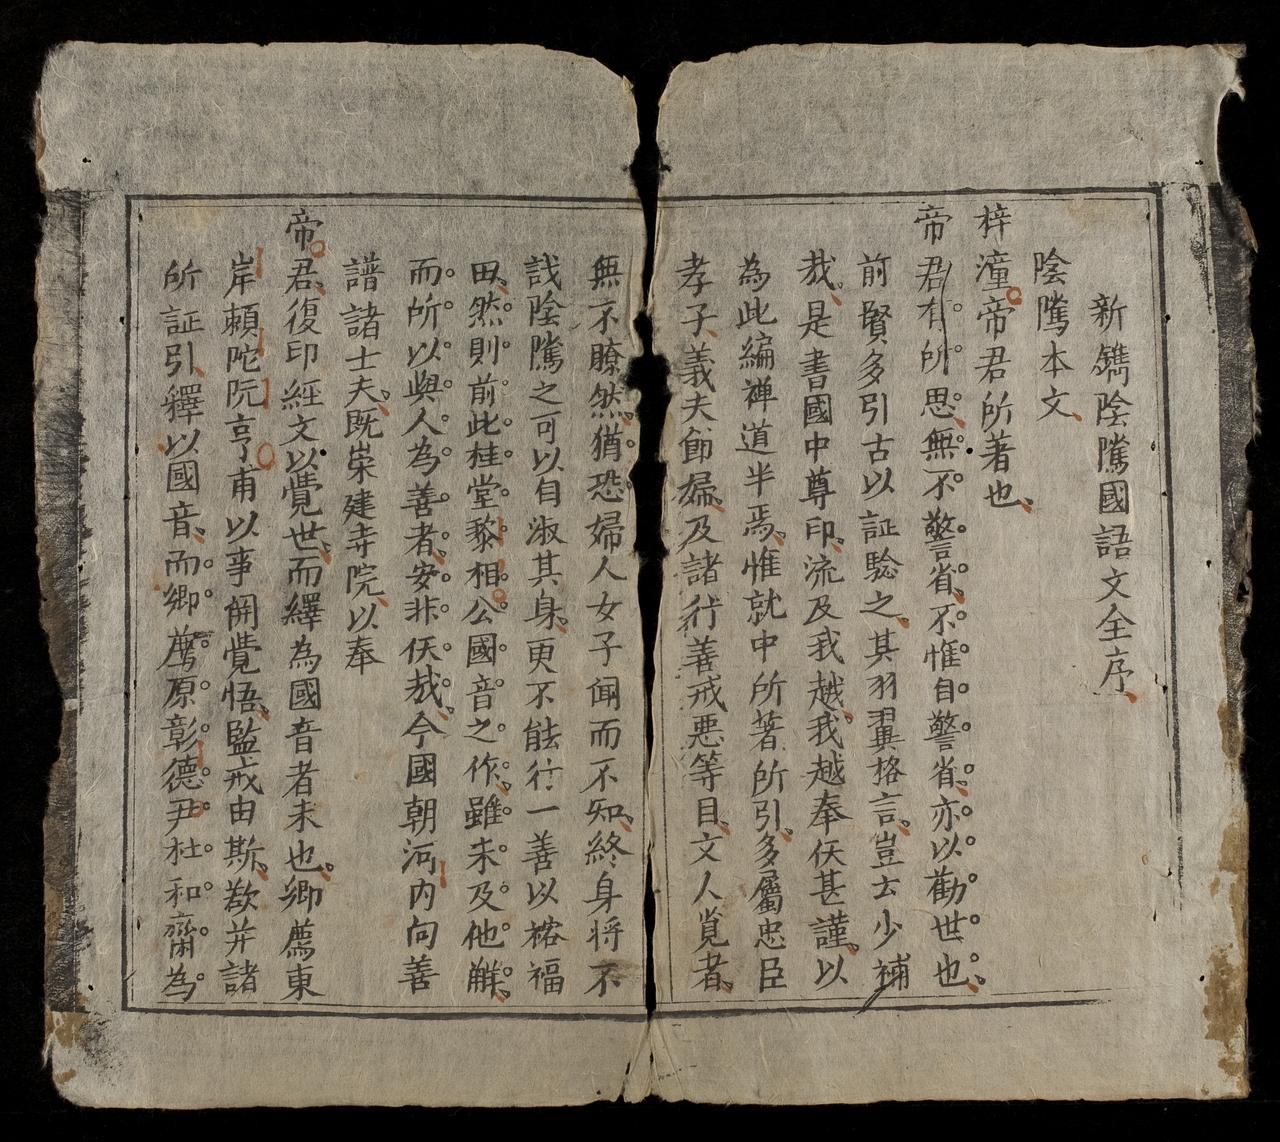 新鐫陰隲國語文全序
陰隲本文
梓潼帝君所著也
帝君有所思無不警省不惟自警省亦以勸世也
前賢多引古以証驗之其羽翼格言豈云少補
㢤是書國中尊印流及我越我越奉仸甚謹以
為此編禅道半焉惟就中所著所引多屬忠臣
孝子義夫節婦及諸行善戒惡等目文人覓者
無不瞭然猶恐婦人女子聞而不知終身将不
哉陰隲之可以自淑其身更不能行一善以裕福
田然則前此桂堂黎相公國音之作雖未及他觧
而所以與人為善者安非仸㢤今國朝河内向善
譜諸士夫既崇建寺院以奉
帝君復印經文以覺世而繹為國音者未也卿薦東
岸頼陀阮亨甫以事開覺悟監戒由斯欻并諸
所証引釋以國音而卿薦原彰德尹杜和齋為